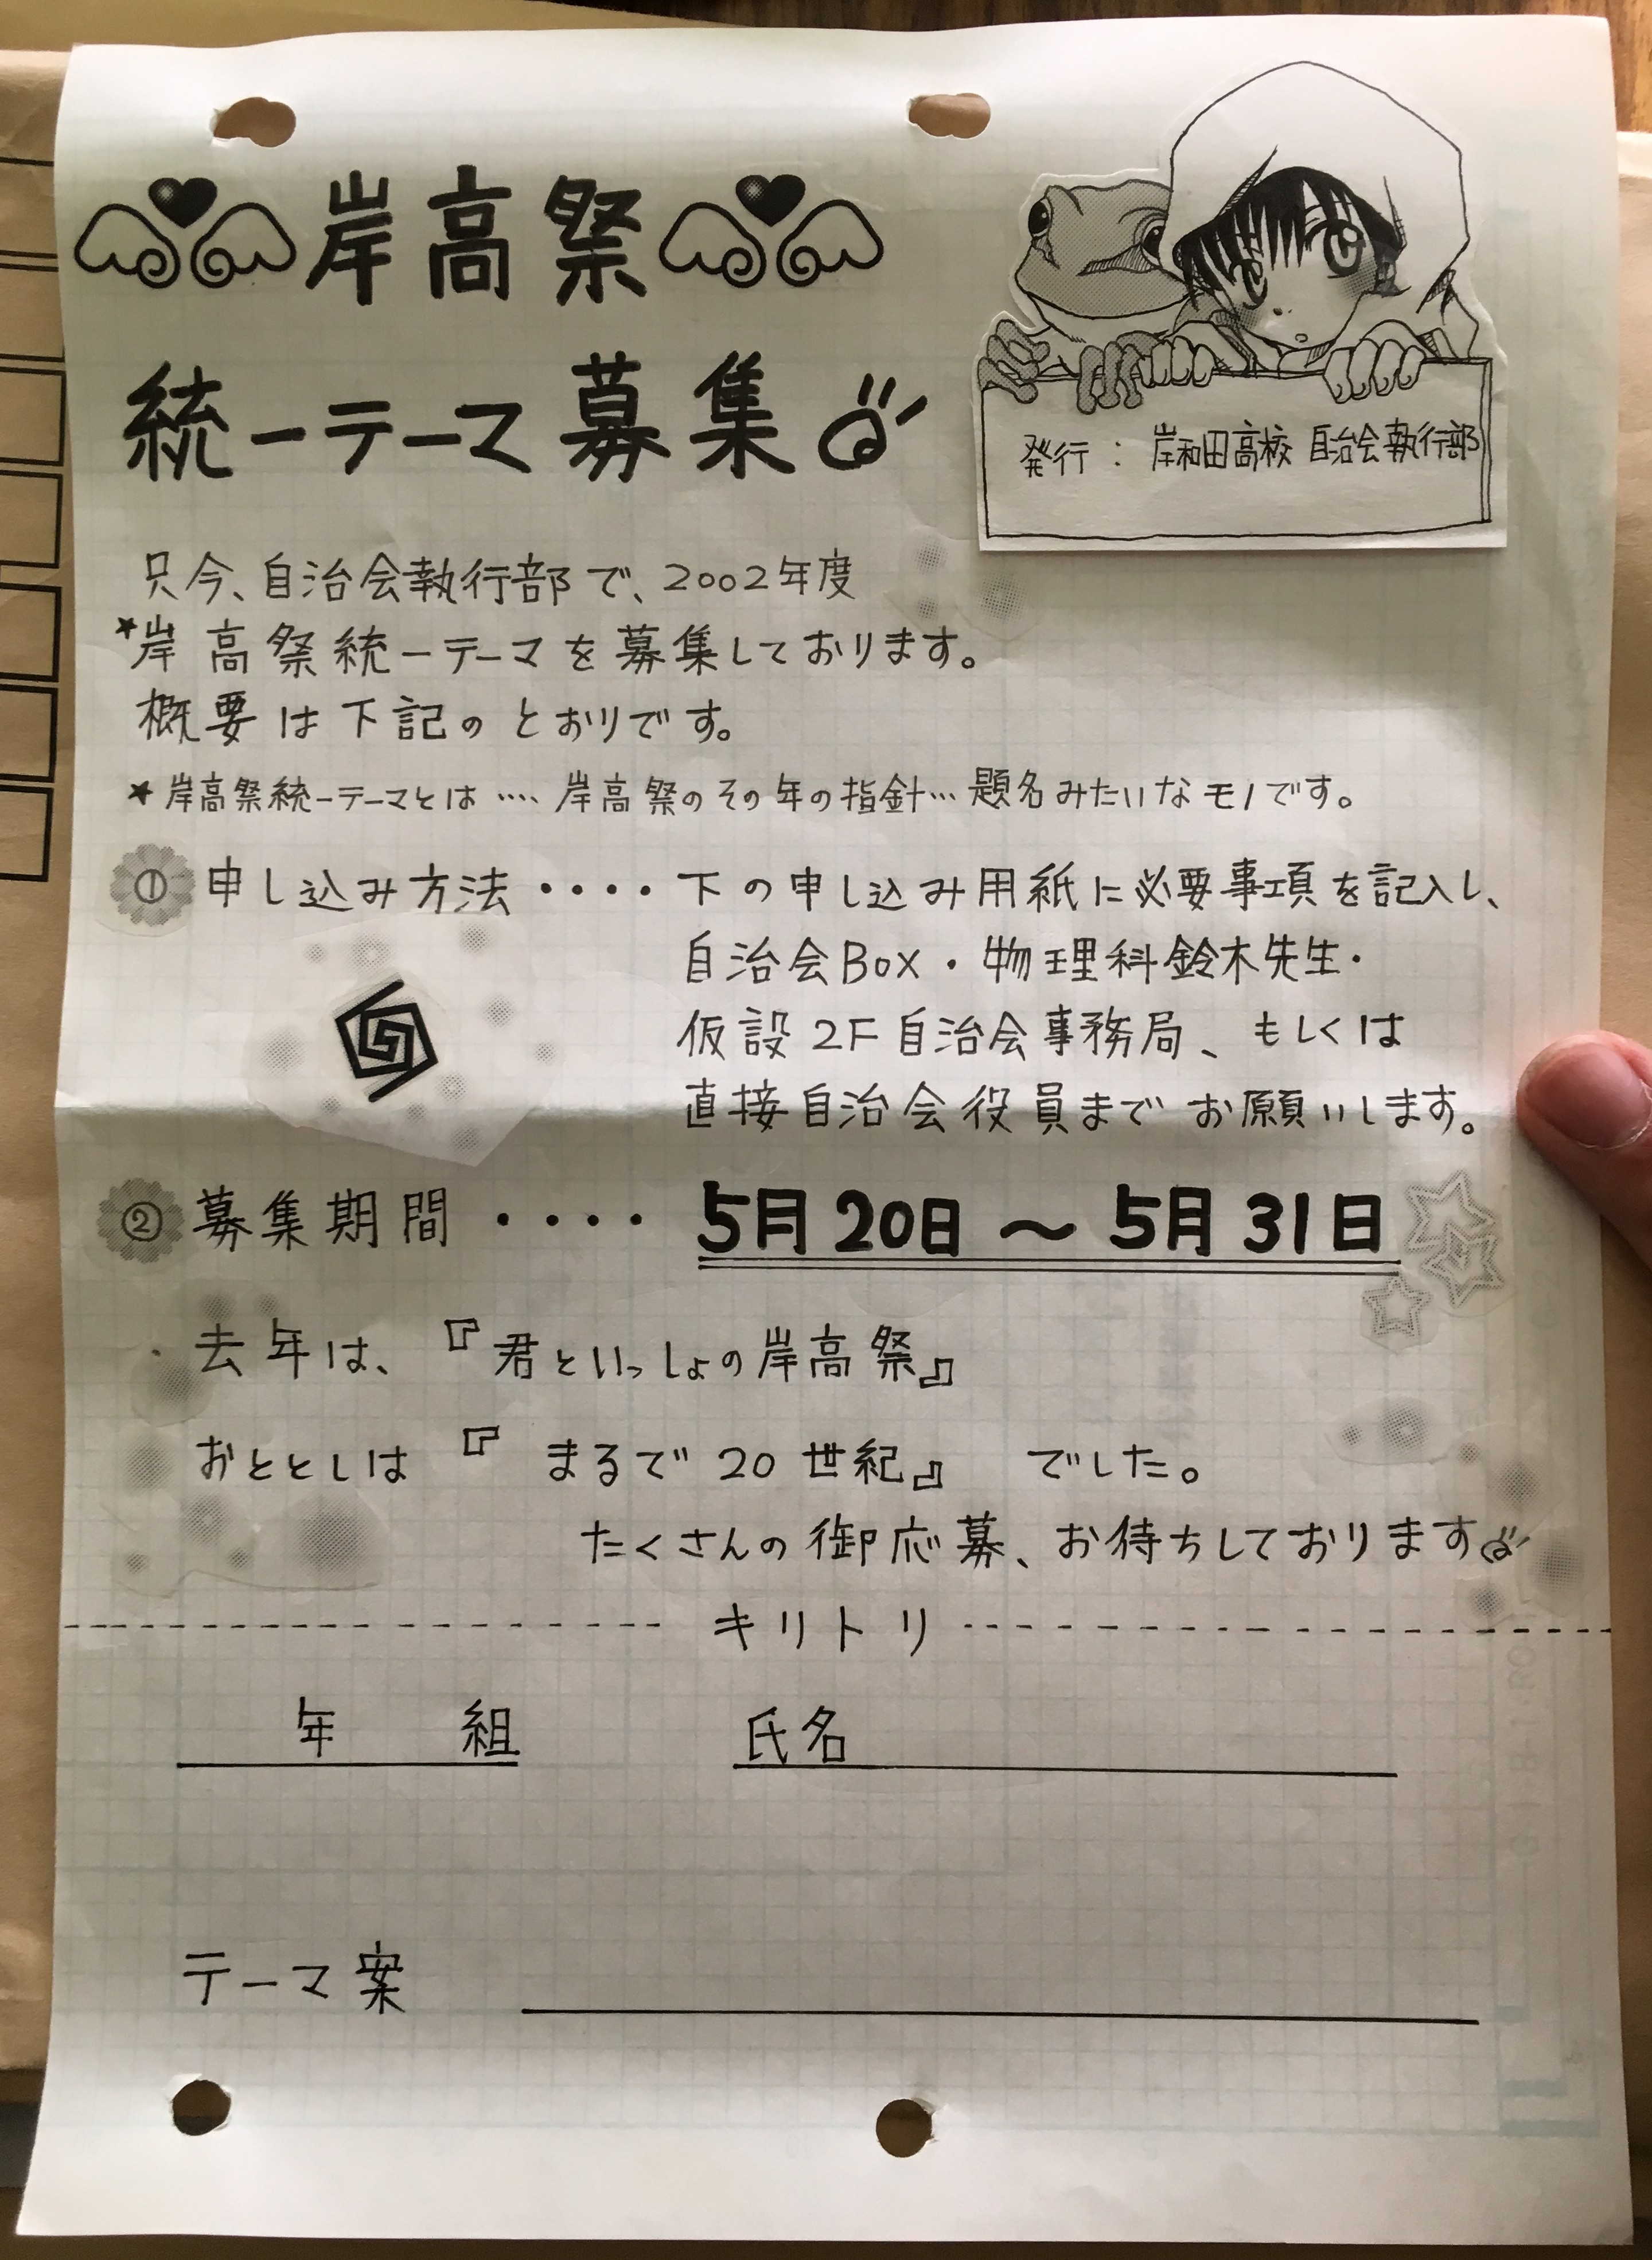 岸高祭
統一テーマ募集
発行：岸和田高校 自治会執行部
只今、自治会執行部で、2002年度
★岸高祭統一テーマを募集しております。
概要は下記のとおりです。
★岸高祭統一テーマとは‥‥岸高祭のその年の指針…題名みたいなモノです。
① 申し込み方法・・・・下の申し込み用紙に必要事項を記入し、
自治会BOX・物理科鈴木先生・
仮設2F自治会事務局、もしくは
直接自治会役員までお願いします。
② 募集期間・・・・5月20日～5月31日
去年は、『君といっしょの岸高祭』
おととしは『まるで20世紀』でした。
たくさんの御応募、お待ちしております
キリトリ
年 組 氏名
テーマ案